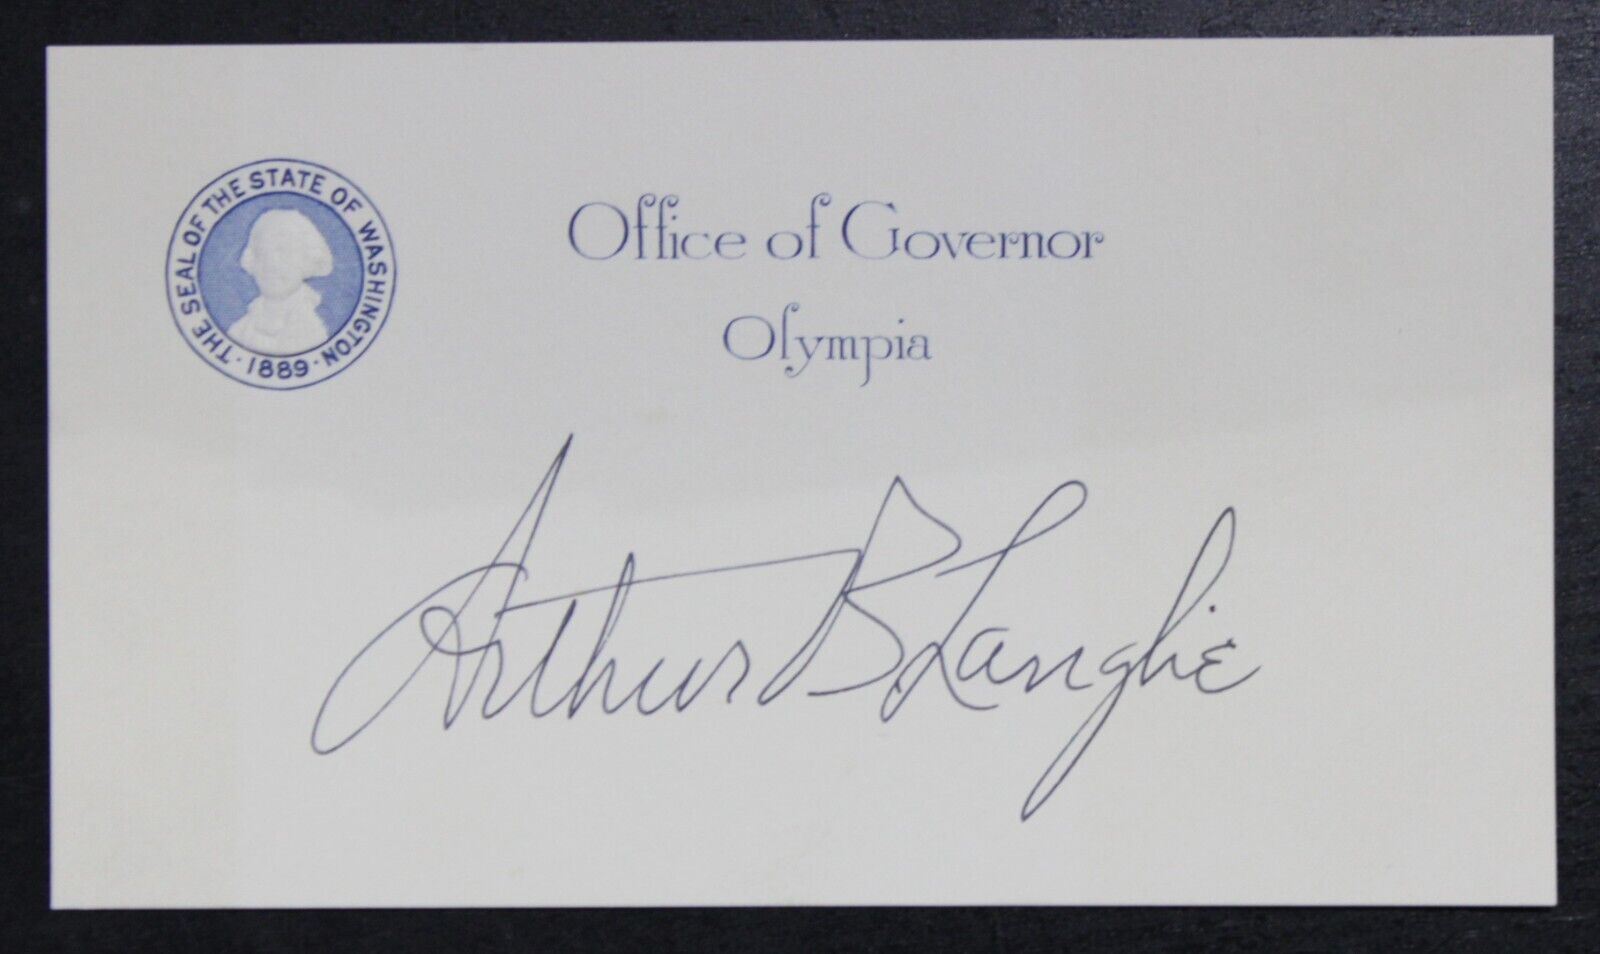 THE SEAL OF THE STATE OF WASHINGTON
· 1889 ·
Office of Governor
Olympia
Arthur B Langlie